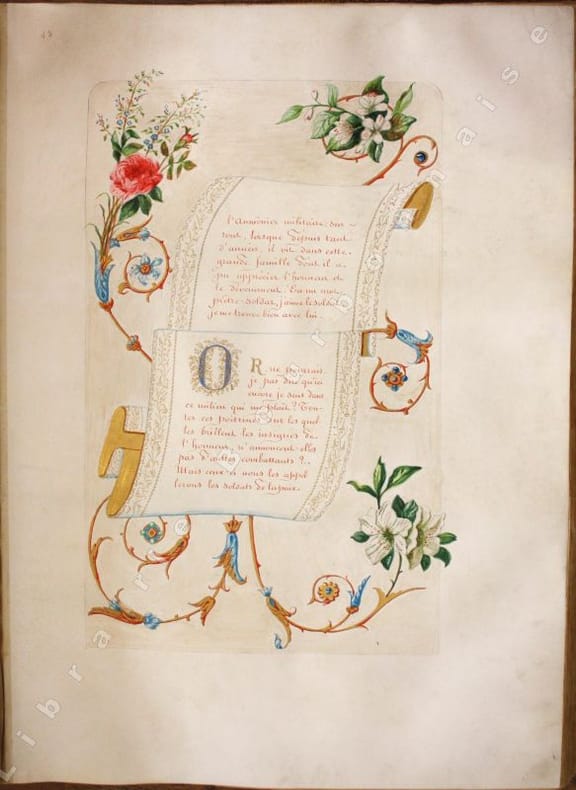 48
l'aumônier militaire, sur-
tout, lorsque depuis tant
d'années, il vit dans cette
grande famille dont il a
pu apprécier l'honneur et
le dévouement. En un mot,
prêtre-soldat, j'aime le soldat
je me trouve bien avec lui.
OR ne pourrais
je pas dire qu'ici
encore je suis dans
ce milieu qui me plaît? Tou-
tes ces poitrines sur les quel
les brillent les insignes de
l'honneur, n'annoncent-elles
pas d'autres combattants?..
Mais ceux-ci nous les appel
lerons les soldats de la paix.
Librairie Bourbonnaise